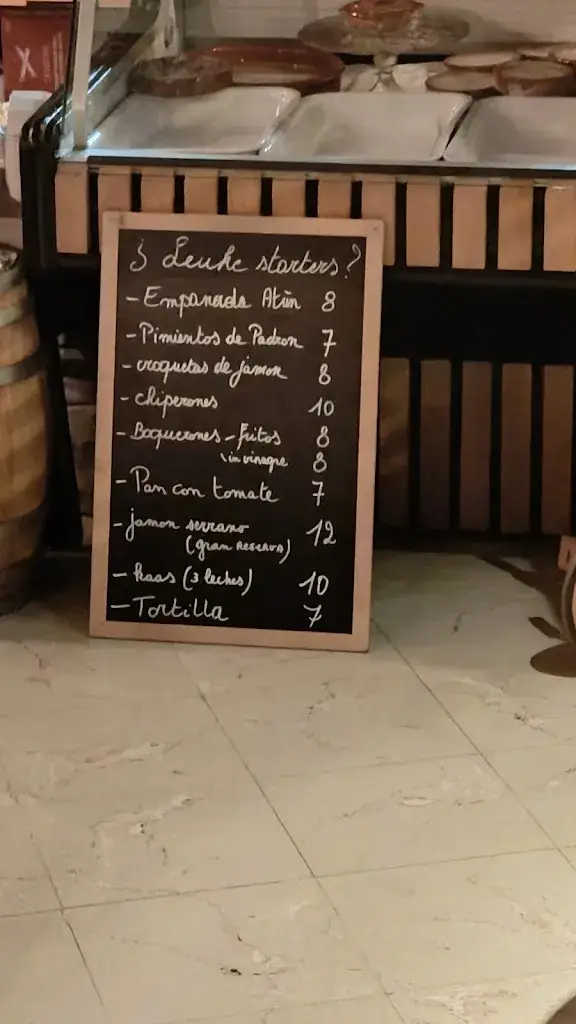 X
¿ Leuke starters?
- Empanada Atún 8
- Pimientos de Padron 7
- croquetas de jamon 8
- chiperones 10
- Boquerones - fritos 8
\ in vinagre 8
- Pan con tomate 7
- jamon serrano 12
(gran RESERVA)
- kaas (3 leches) 10
- Tortilla 7